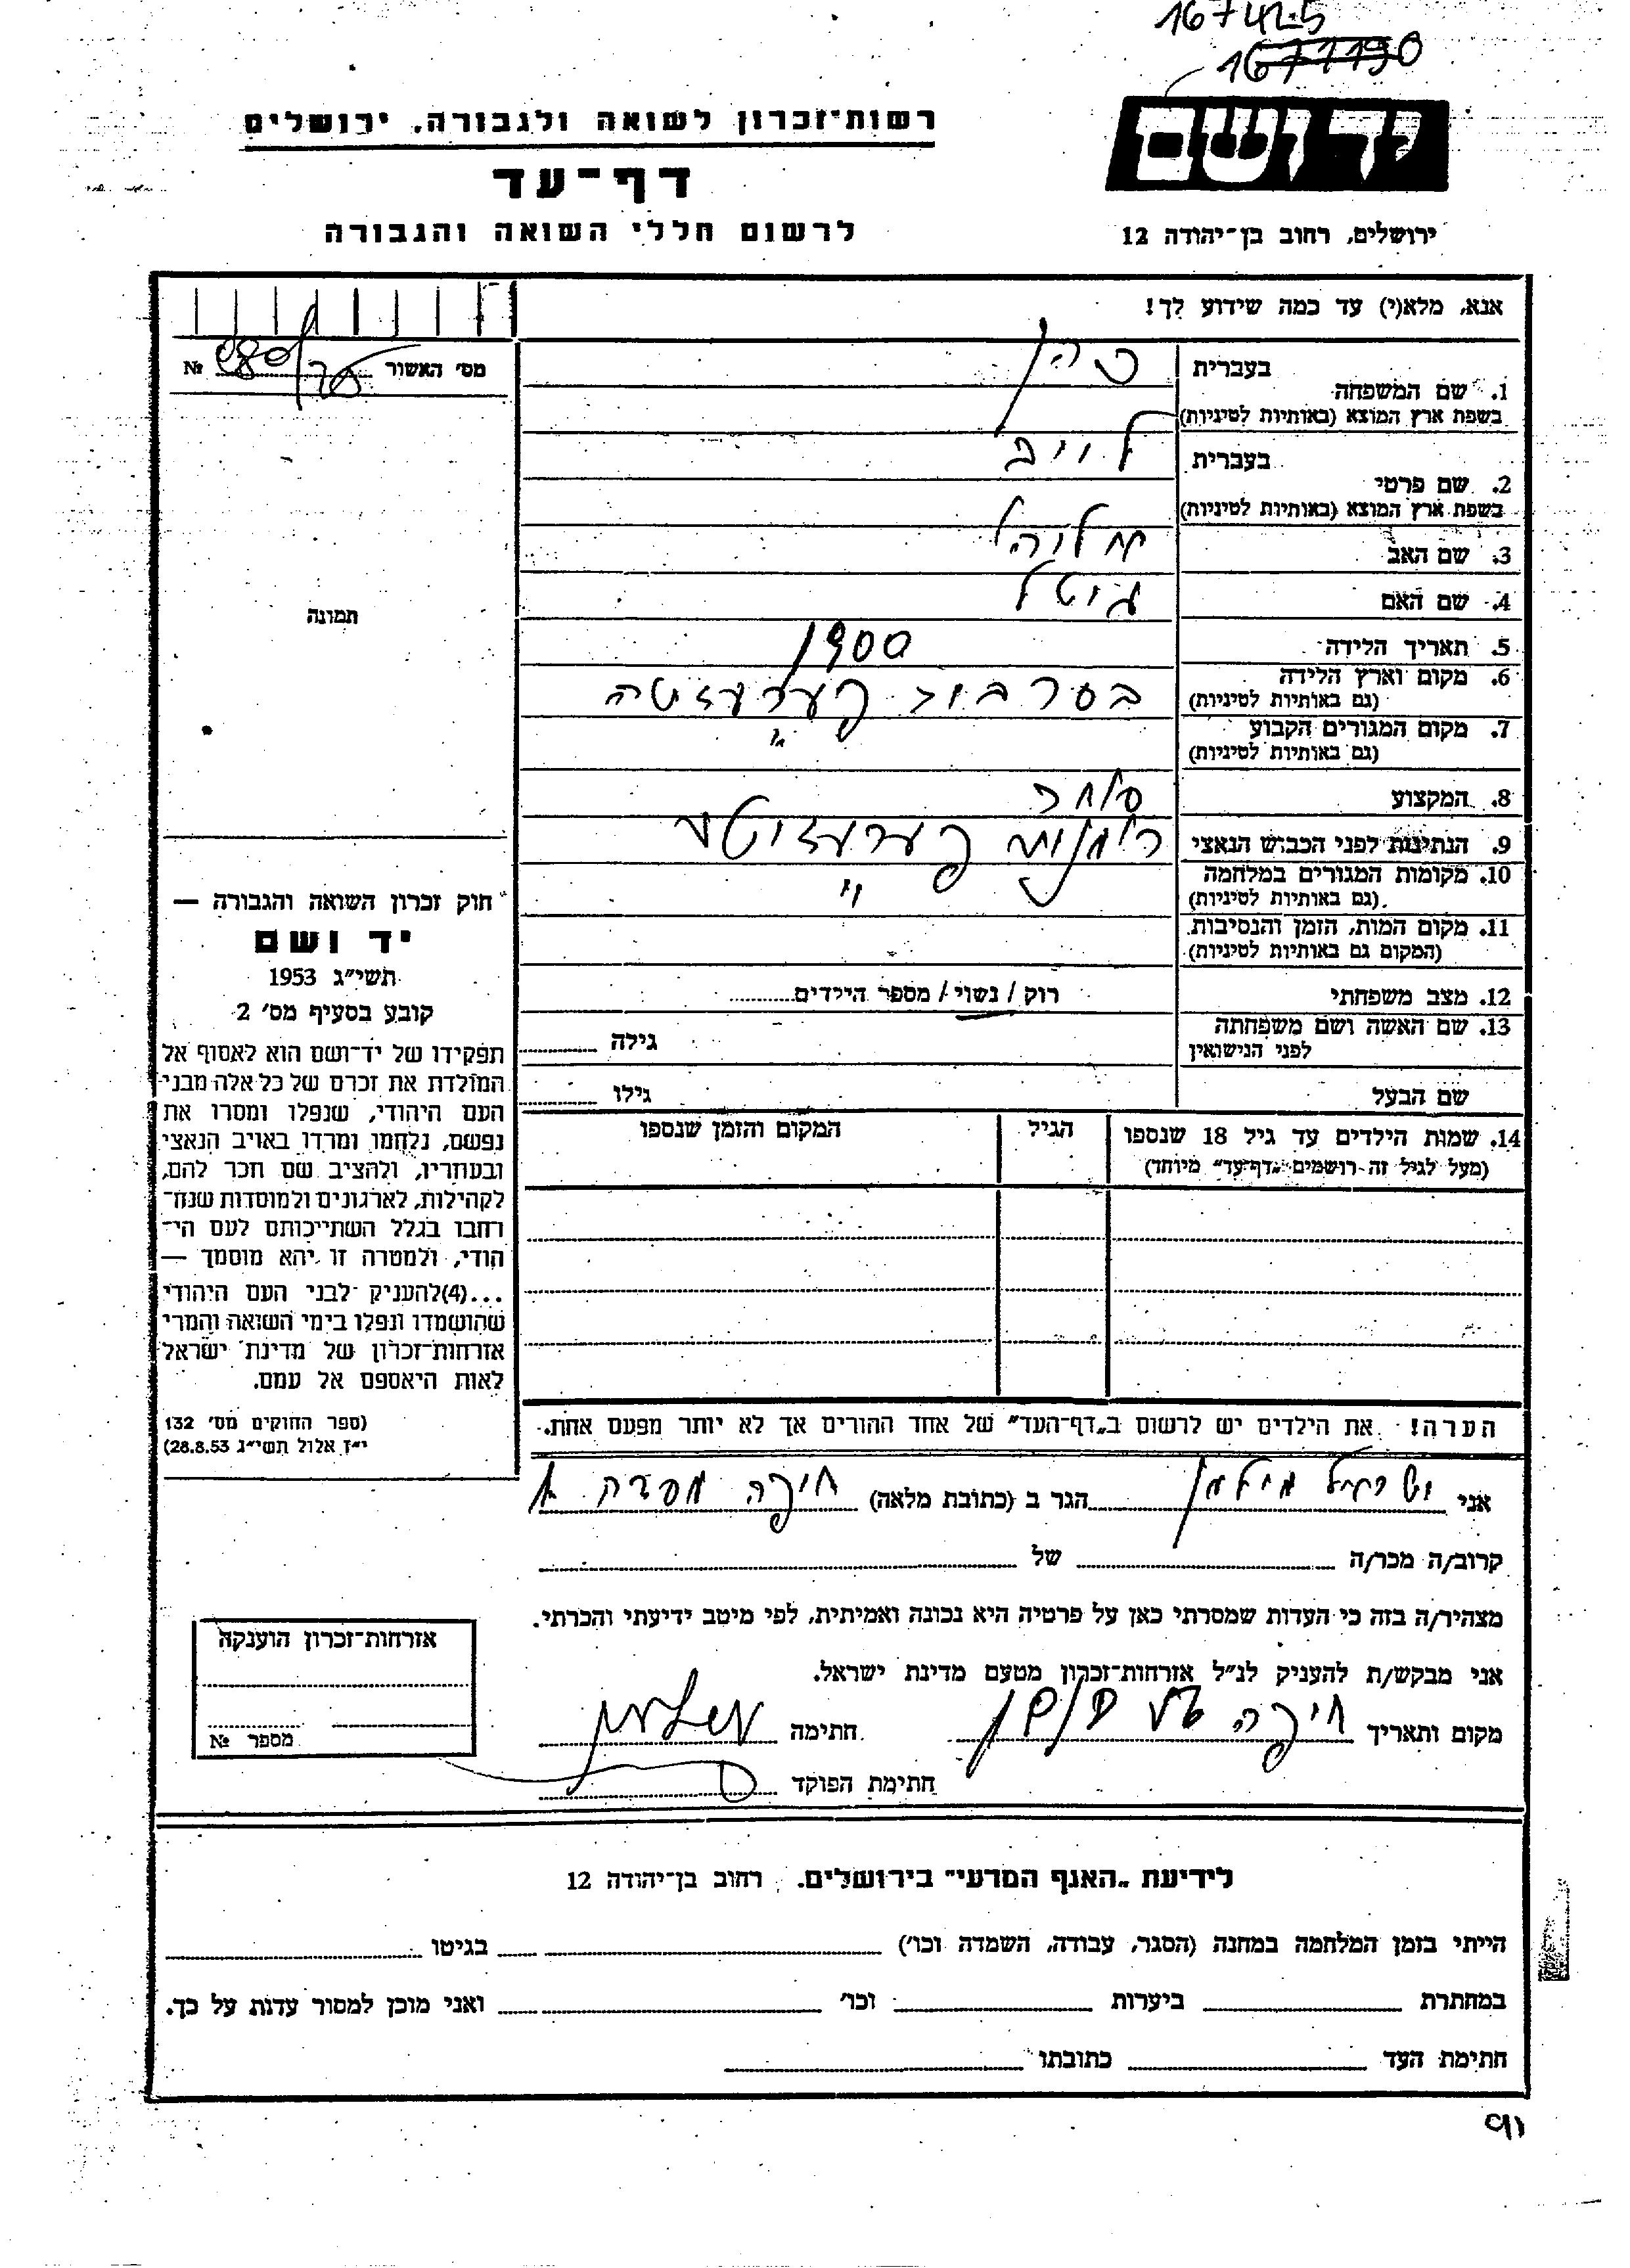 167425
1671190
יד ושם
רשות־זכרון לשואה ולגבורה, ירושלים
דף־עד
לרשום חללי השואה והגבורה
ירושלים, רחוב בן־יהודה 12
אנא, מלא(י) עד כמה שידוע לך!
מס׳ האשור № 
1. שם המשפחה
בעברית
בשפת ארץ המוצא (באותיות לטיניות)
2. שם פרטי
בעברית
בשפת ארץ המוצא (באותיות לטיניות)
3. שם האב
4. שם האם גיטל
5. תאריך הלידה 1900
6. מקום וארץ הלידה
(גם באותיות לטיניות)
7. מקום המגורים הקבוע "
(גם באותיות לטיניות)
8. המקצוע סוחר
9. הנתינות לפני הכבוש הנאצי
10. מקומות המגורים במלחמה "
(גם באותיות לטיניות)
11. מקום המות, הזמן והנסיבות
(המקום גם באותיות לטיניות)
12. מצב משפחתי רוק / נשוי / מספר הילדים
13. שם האשה ושם משפחתה
לפני הנישואין גילה
שם הבעל גילו
14. שמות הילדים עד גיל 18 שנספו הגיל המקום והזמן שנספו
(מעל לגיל זה רושמים „דף־עד״ מיוחד)
תמונה
חוק זכרון השואה והגבורה —
יד ושם
תשי״ג 1953
קובע בסעיף מס׳ 2
תפקידו של יד־ושם הוא לאסוף אל
המולדת את זכרם של כל אלה מבני־
העם היהודי, שנפלו ומסרו את
נפשם, נלחמו ומרדו באויב הנאצי
ובעוזריו, ולהציב שם וזכר להם,
לקהילות, לארגונים ולמוסדות שנח־
רחבו בגלל השתייכותם לעם הי־
הודי, ולמטרה זו יהא מוסמך —
...(4)להעניק לבני העם היהודי
שהושמדו ונפלו בימי השואה והמרי
אזרחות־זכרון של מדינת ישראל
לאות היאספם אל עמם.
(ספר החוקים מס׳ 132
י״ז אלול תשי״ג 28.8.53)
הערה! את הילדים יש לרשום ב„דף־העד״ של אחד ההורים אך לא יותר מפעם אחת.
אני הגר ב (כתובת מלאה) חיפה
קרוב/ה מכר/ה של
מצהיר/ה בזה כי העדות שמסרתי כאן על פרטיה היא נכונה ואמיתית, לפי מיטב ידיעתי והכרתי.
אני מבקש/ת להעניק לנ״ל אזרחות־זכרון מטעם מדינת ישראל.
מקום ותאריך חיפה חתימה
חתימת הפוקד
אזרחות־זכרון הוענקה
מספר №
לידיעת „האגף המדעי״ בירושלים. רחוב בן־יהודה 12
הייתי בזמן המלחמה במחנה (הסגר, עבודה, השמדה וכו׳) בגיטו
במחתרת ביערות וכו׳ ואני מוכן למסור עדות על כך.
חתימת העד כתובתו